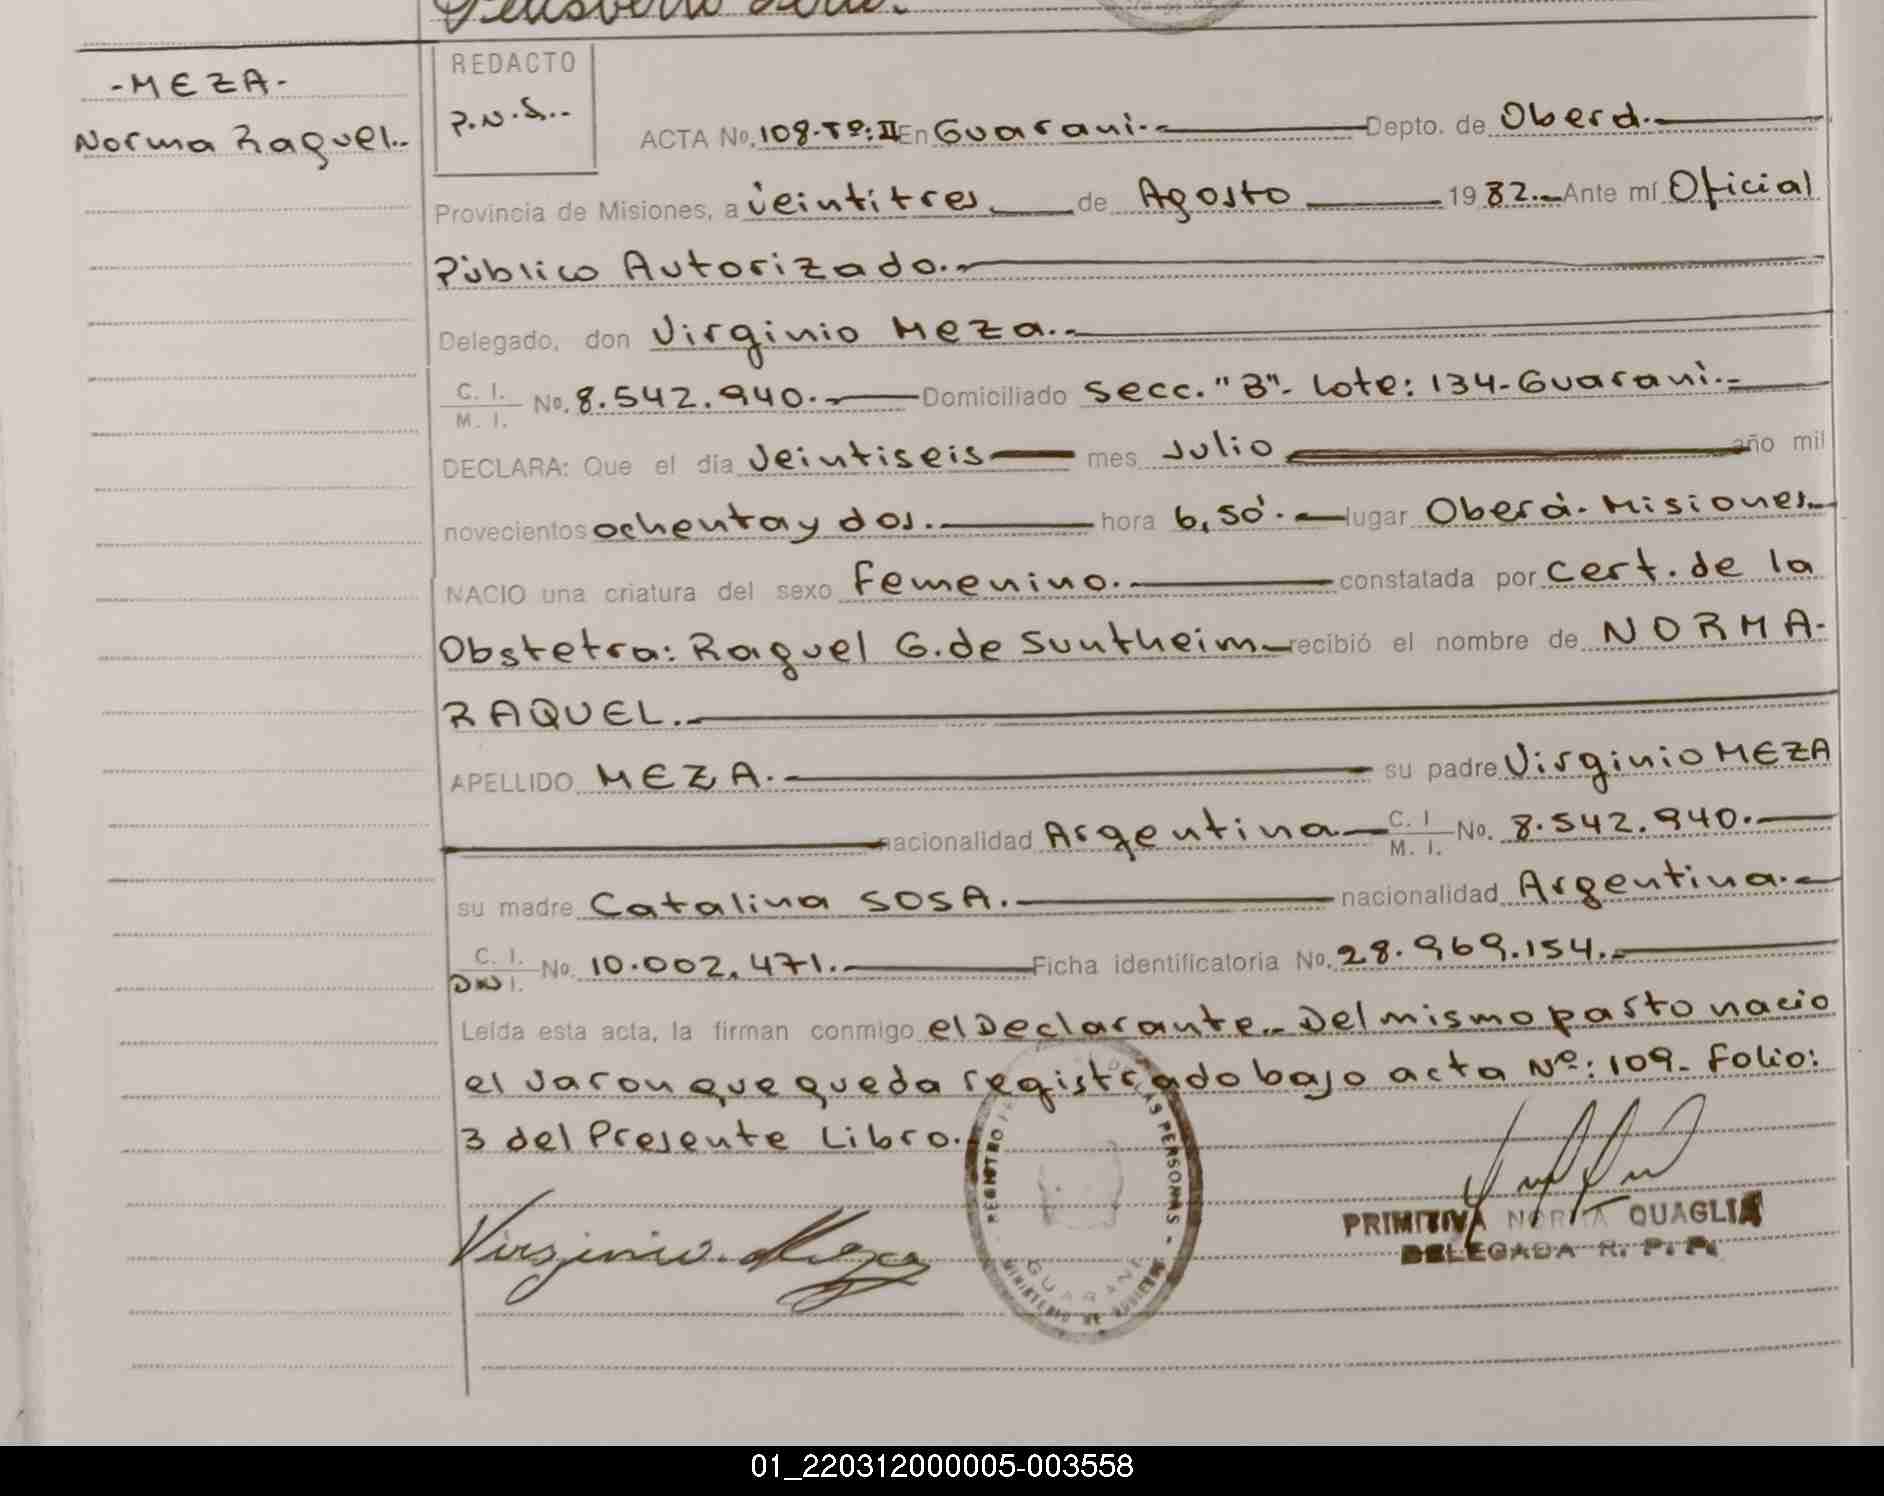 -MEZA-
Norma Raquel.-
REDACTO
P.N.S.--
ACTA No. 108-Tº:II En Guaraní.- Depto. de Oberá.-
Provincia de Misiones, a veintitres de Agosto 1982.- Ante mí Oficial
Público Autorizado.-
Delegado, don Virginio Meza.-
C. I.
M. I. No. 8.542.940.- Domiciliado Secc. "B"- Lote: 134-Guaraní.-
DECLARA: Que el día veintiseis mes Julio año mil
novecientos ochenta y dos.- hora 6,50'.- lugar Oberá- Misiones.-
NACIO una criatura del sexo Femenino.- constatada por Cert. de la
Obstetra: Raquel G. de Suntheim- recibió el nombre de NORMA-
RAQUEL.-
APELLIDO MEZA.- su padre Virginio MEZA
nacionalidad Argentina- C. I.
M. I. No. 8.542.940.-
su madre Catalina SOSA.- nacionalidad Argentina.-
C. I.
DNI. No. 10.002.471.- Ficha identificatoria No. 28.969.154.-
Leída esta acta, la firman conmigo el Declarante.- Del mismo parto nacio
el varon que queda registrado bajo acta Nº: 109- Folio:
3 del Presente Libro.-
Virginio Meza
REGISTRO DE LAS PERSONAS
GUARANI
MINISTERIO DE GOBIERNO
PRIMITIVA NORMA QUAGLIA
DELEGADA R. P. P.
01_220312000005-003558